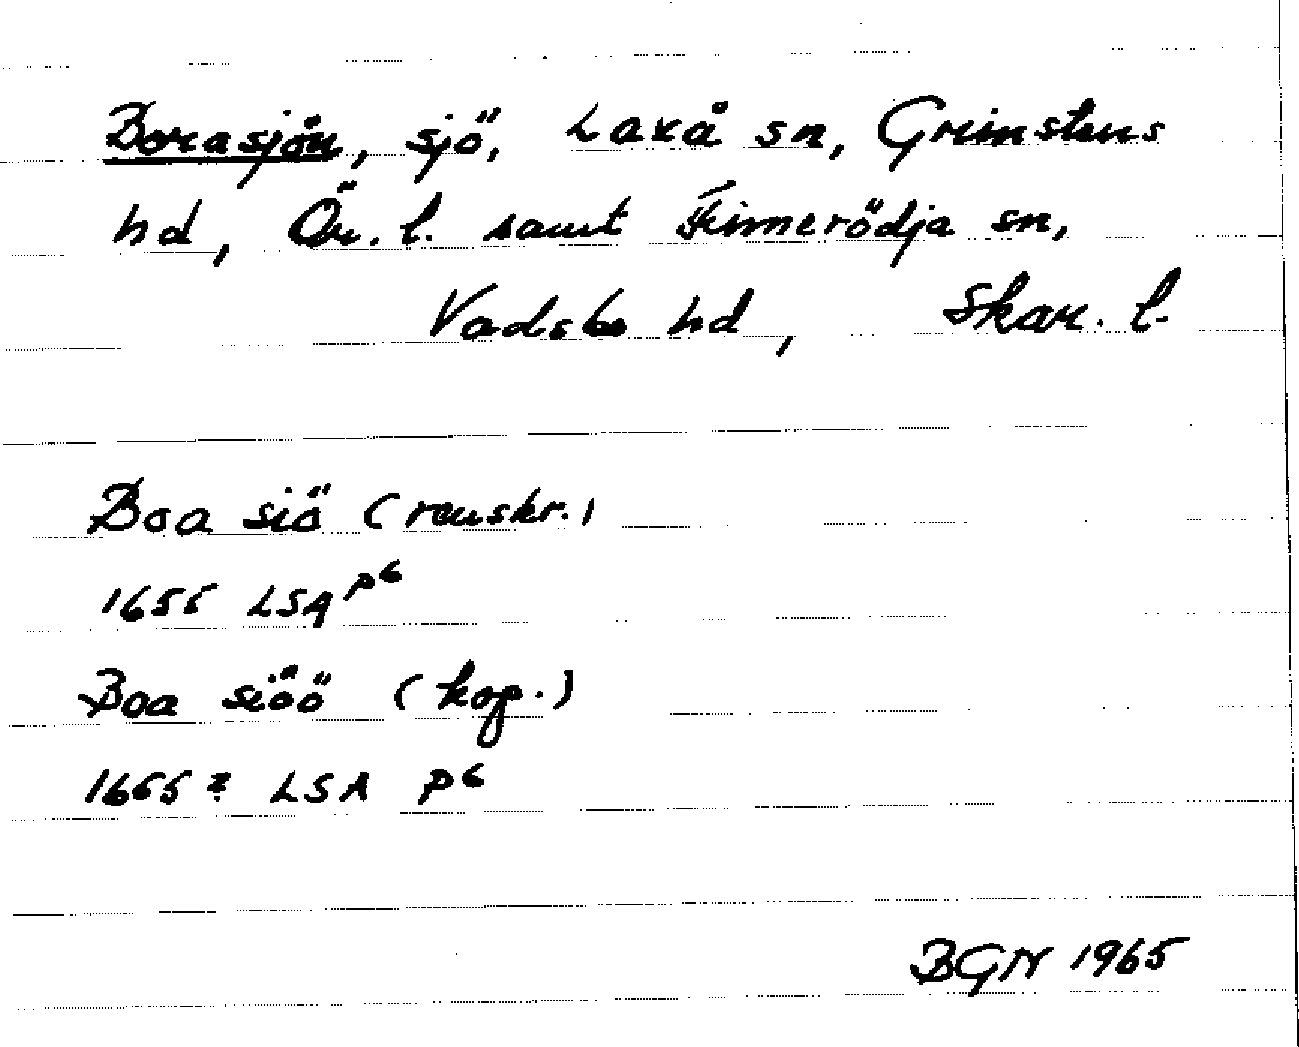 Borasjön, sjö, Laxå sn, Grimstens
hd, Ör. l. samt Finnerödja sn,
Vadsbo hd, Skar. l.
Boa siö (renskr.)
1655 LSA P6
Boa siöö (kop.)
1655? LSA P6
BGN 1965